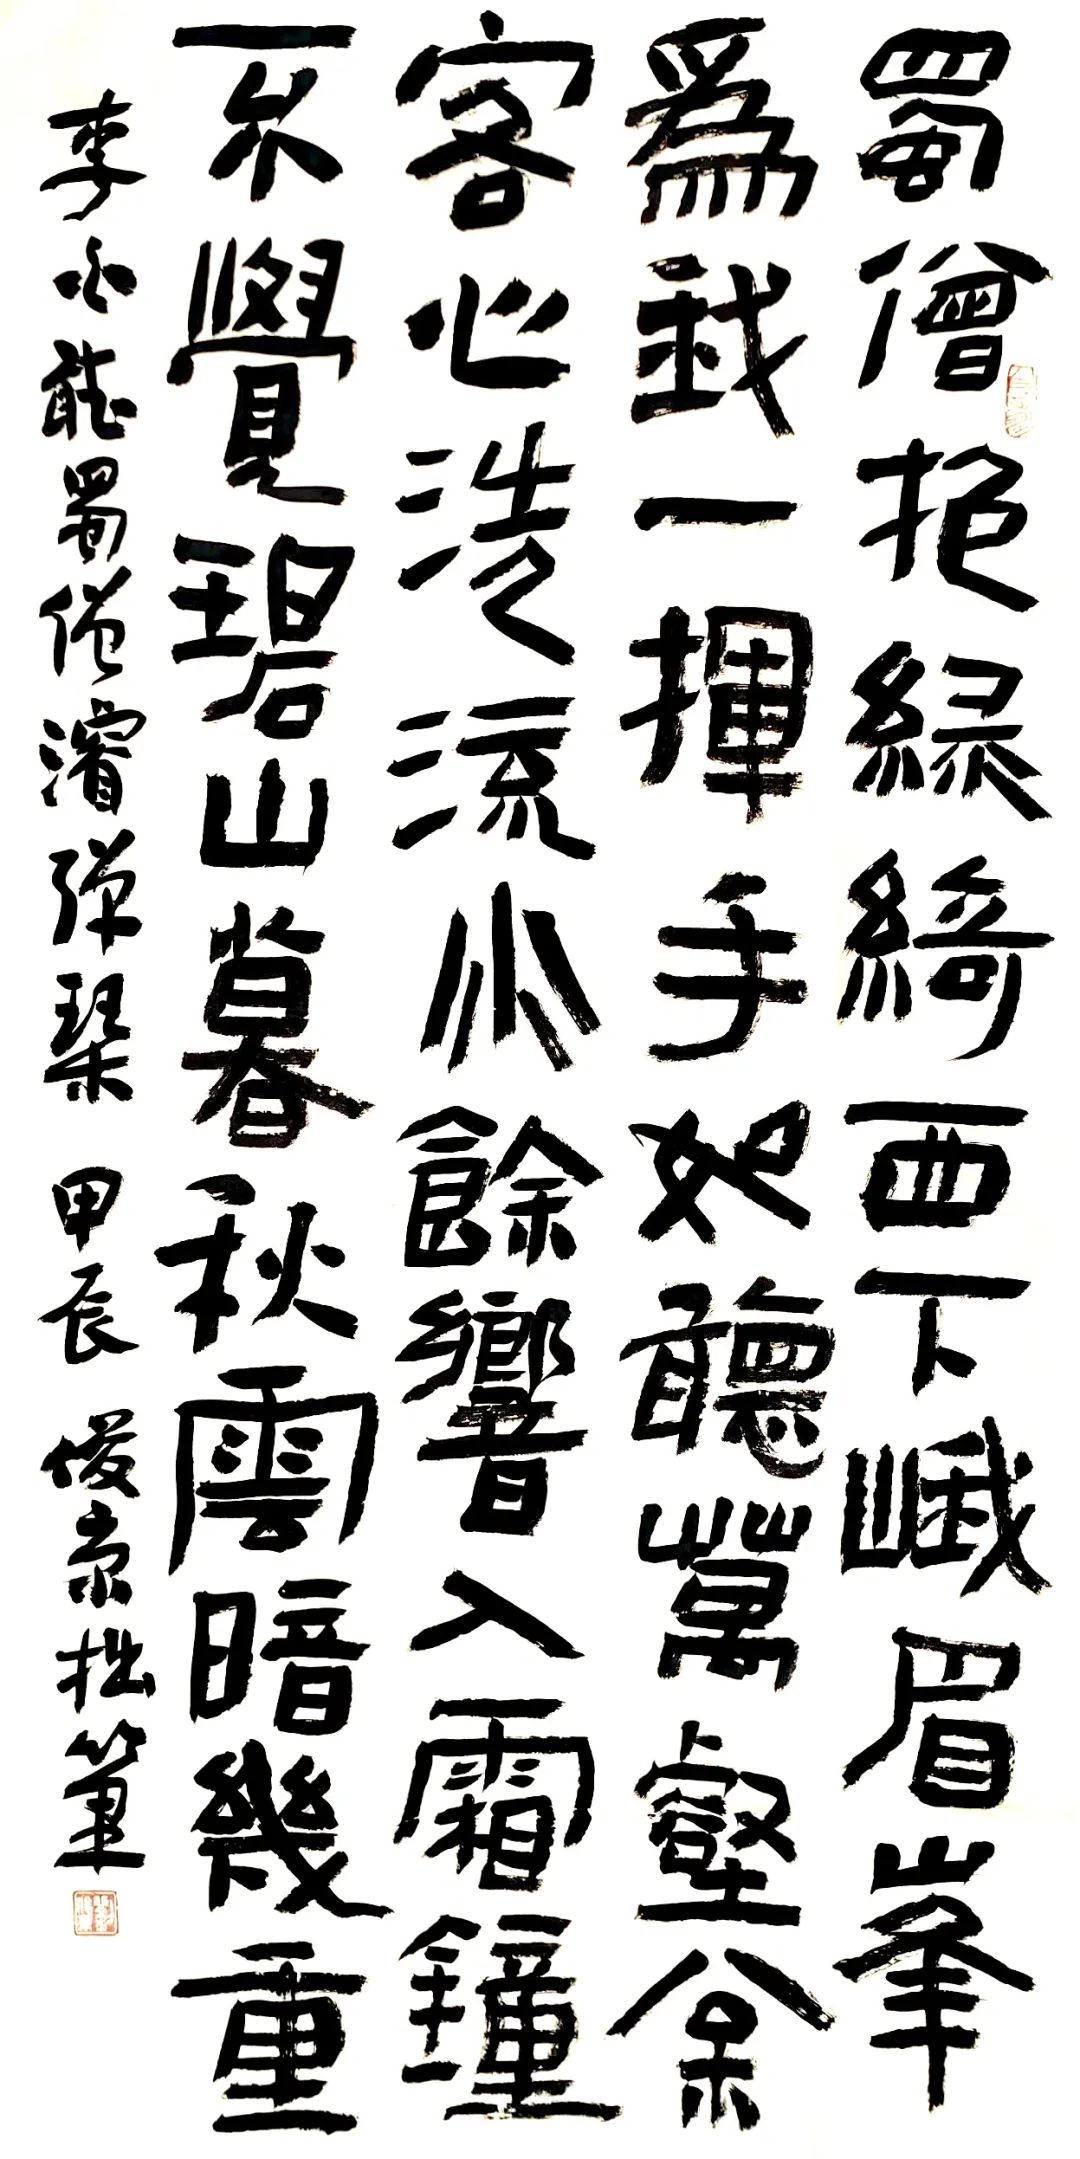 蜀僧抱綠綺西下峨眉峯
爲我一揮手如聽萬壑枀
客心洗流水餘響入霜鐘
不覺碧山暮秋雲暗幾重
李白聽蜀僧濬彈琴 甲辰 俊京拙筆